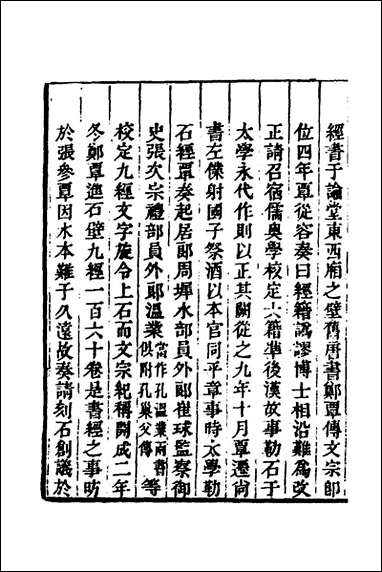 經書于論堂東西廂之壁舊唐書鄭覃傳文宗卽
位四年覃從容奏曰經籍訛謬博士相沿難爲改
正請召宿儒奥學校定六籍準後漢故事勒石于
太學永代作則以正其闕從之九年十月覃遷尚
書左僕射國子祭酒以本官同平章事時太學勒
石經覃奏起居郎周墀水部員外郎崔球監察御
史張次宗禮部員外郎溫業當作孔溫業兩書俱附孔巢父傳等
校定九經文字旋令上石而文宗紀稱開成二年
冬鄭覃進石壁九經一百六十卷是書經之事昉
於張參覃因水本難于久遠故奏請刻石創議於